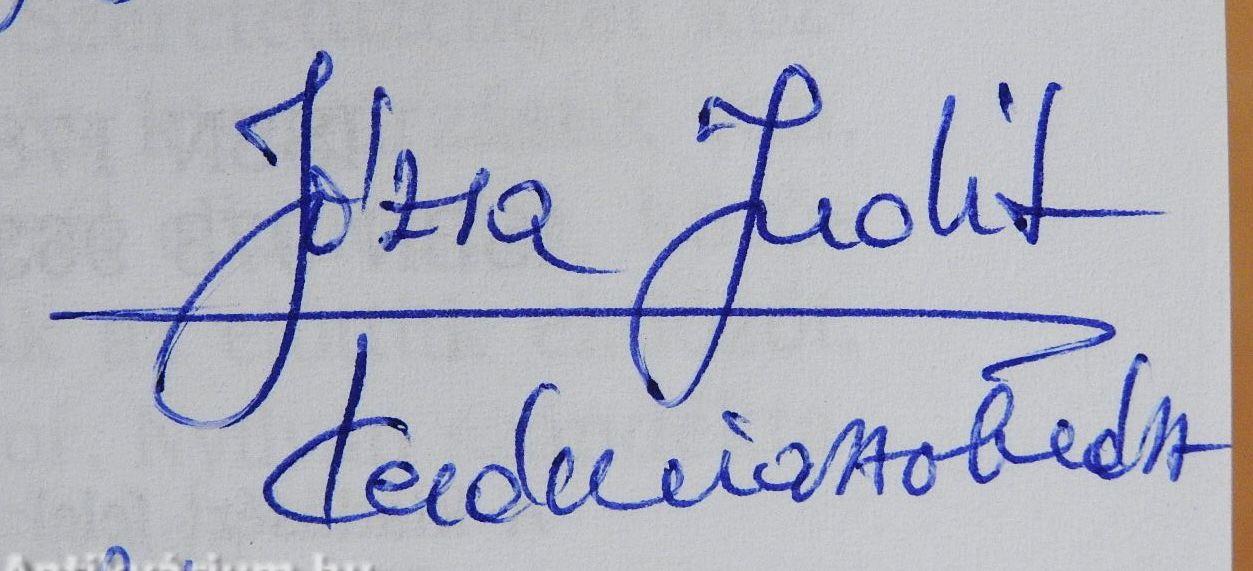 Józsa Judit
kerámiaszobrász
Antikvárium.hu